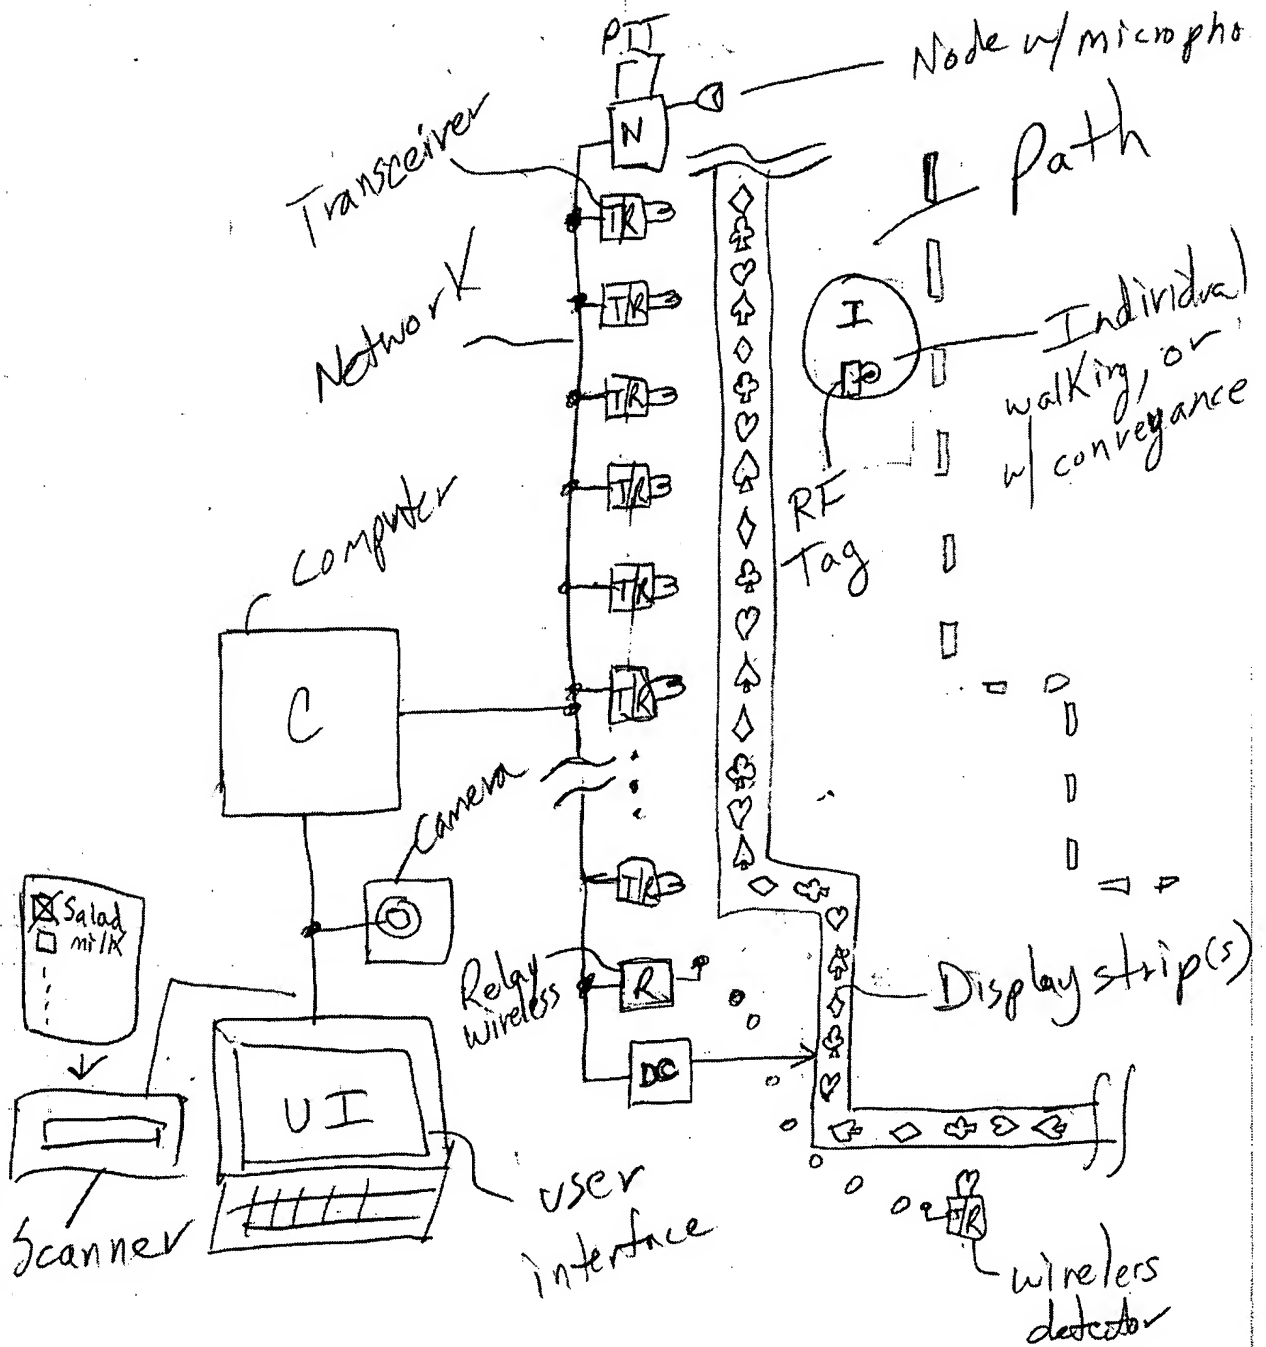 PTT
Node w/ micropho
N
Path
Transceiver
T/R
Network
T/R
I
Individual
walking, or
w/ conveyance
T/R
RF
Tag
T/R
Computer
T/R
C
T/R
Camera
T/R
Salad
milk
Relay
wireless
R
Display strip(s)
DC
UI
Scanner
user
interface
T/R
wireless
detector